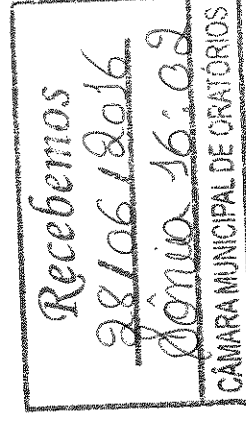 Recebemos
28/06/2016
Sônia 16:02
CÂMARA MUNICIPAL DE ORATÓRIOS